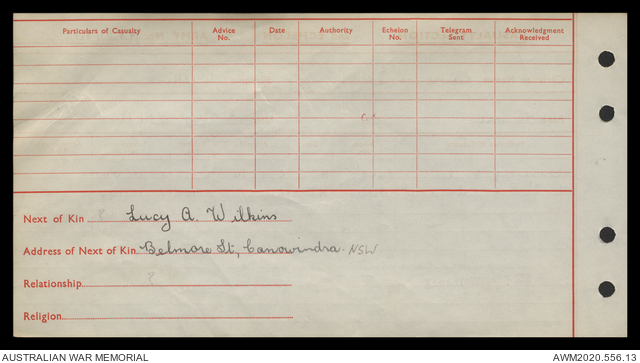 Particulars of Casualty Advice No. Date Authority Echelon No. Telegram Sent Acknowledgment Received
Next of Kin Lucy A. Wilkins
Address of Next of Kin Belmore St, Canowindra. NSW
Relationship ?
Religion
AUSTRALIAN WAR MEMORIAL AWM2020.556.13